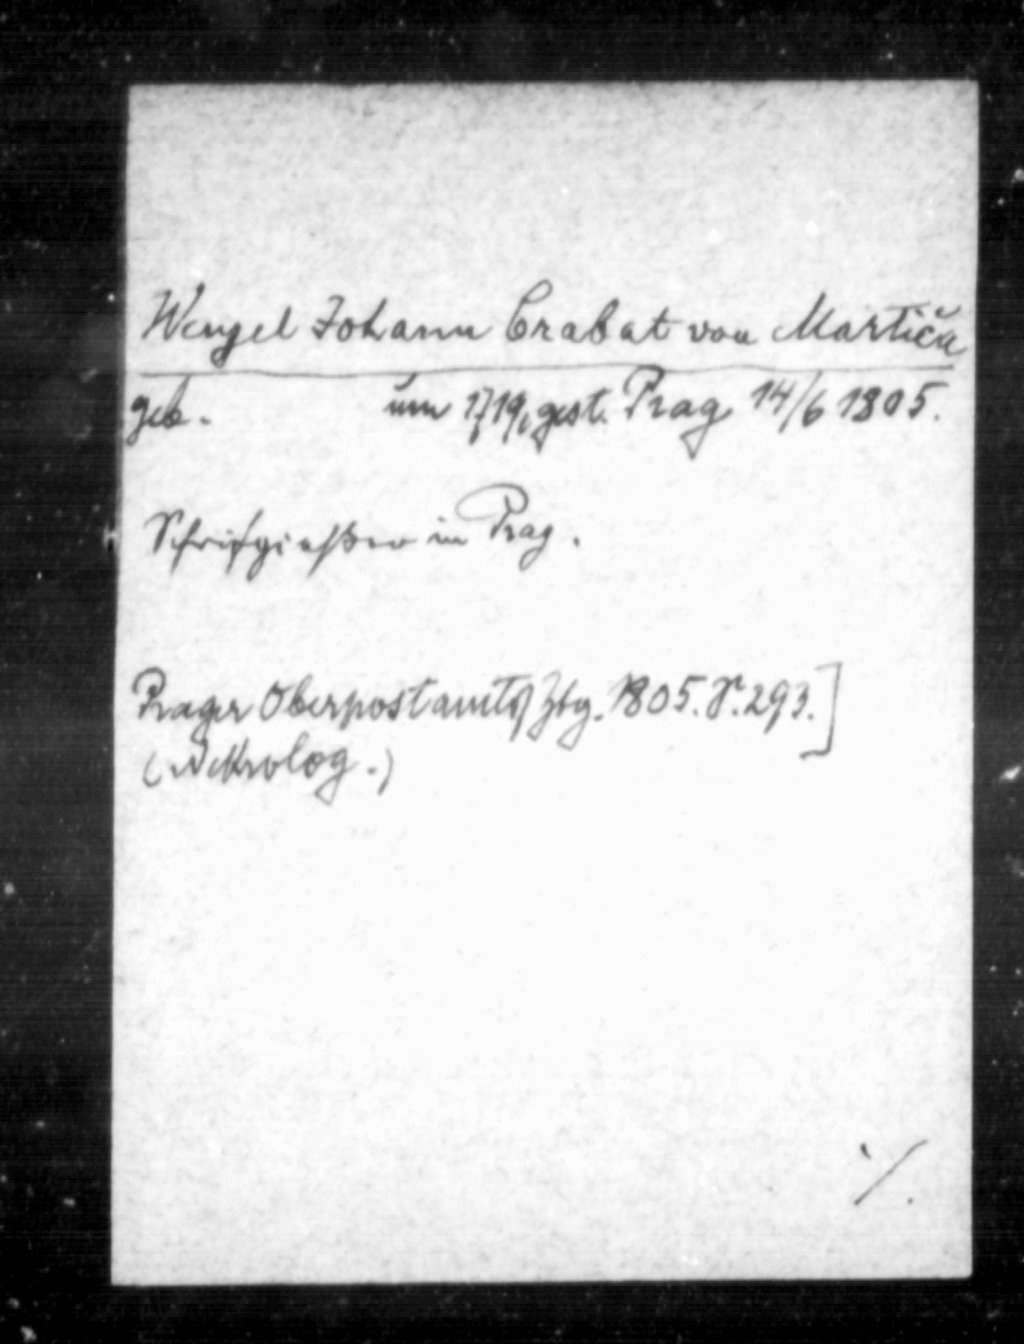 Wenzel Johann Crabat von Martič
geb. um 1719, gest. Prag 14/6 1805.
Schrifgießer in Prag.
Prager Oberpostamts Ztg. 1805. S. 293.]
(Nekrolog.)